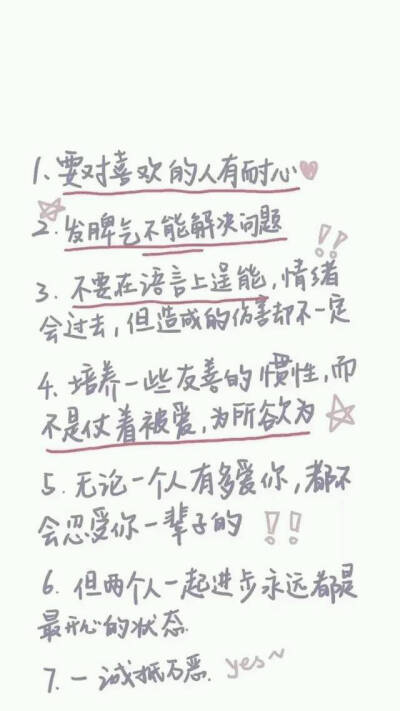 1、要对喜欢的人有耐心
2、发脾气不能解决问题
3. 不要在语言上逞能,情绪
会过去,但造成的伤害却不一定
4. 培养一些友善的惯性,而
不是仗着被爱,为所欲为
5. 无论一个人有多爱你,都不
会忍受你一辈子的 !!
6. 但两个人一起进步永远都是
最开心的状态
7. 一诚抵万恶. yes~